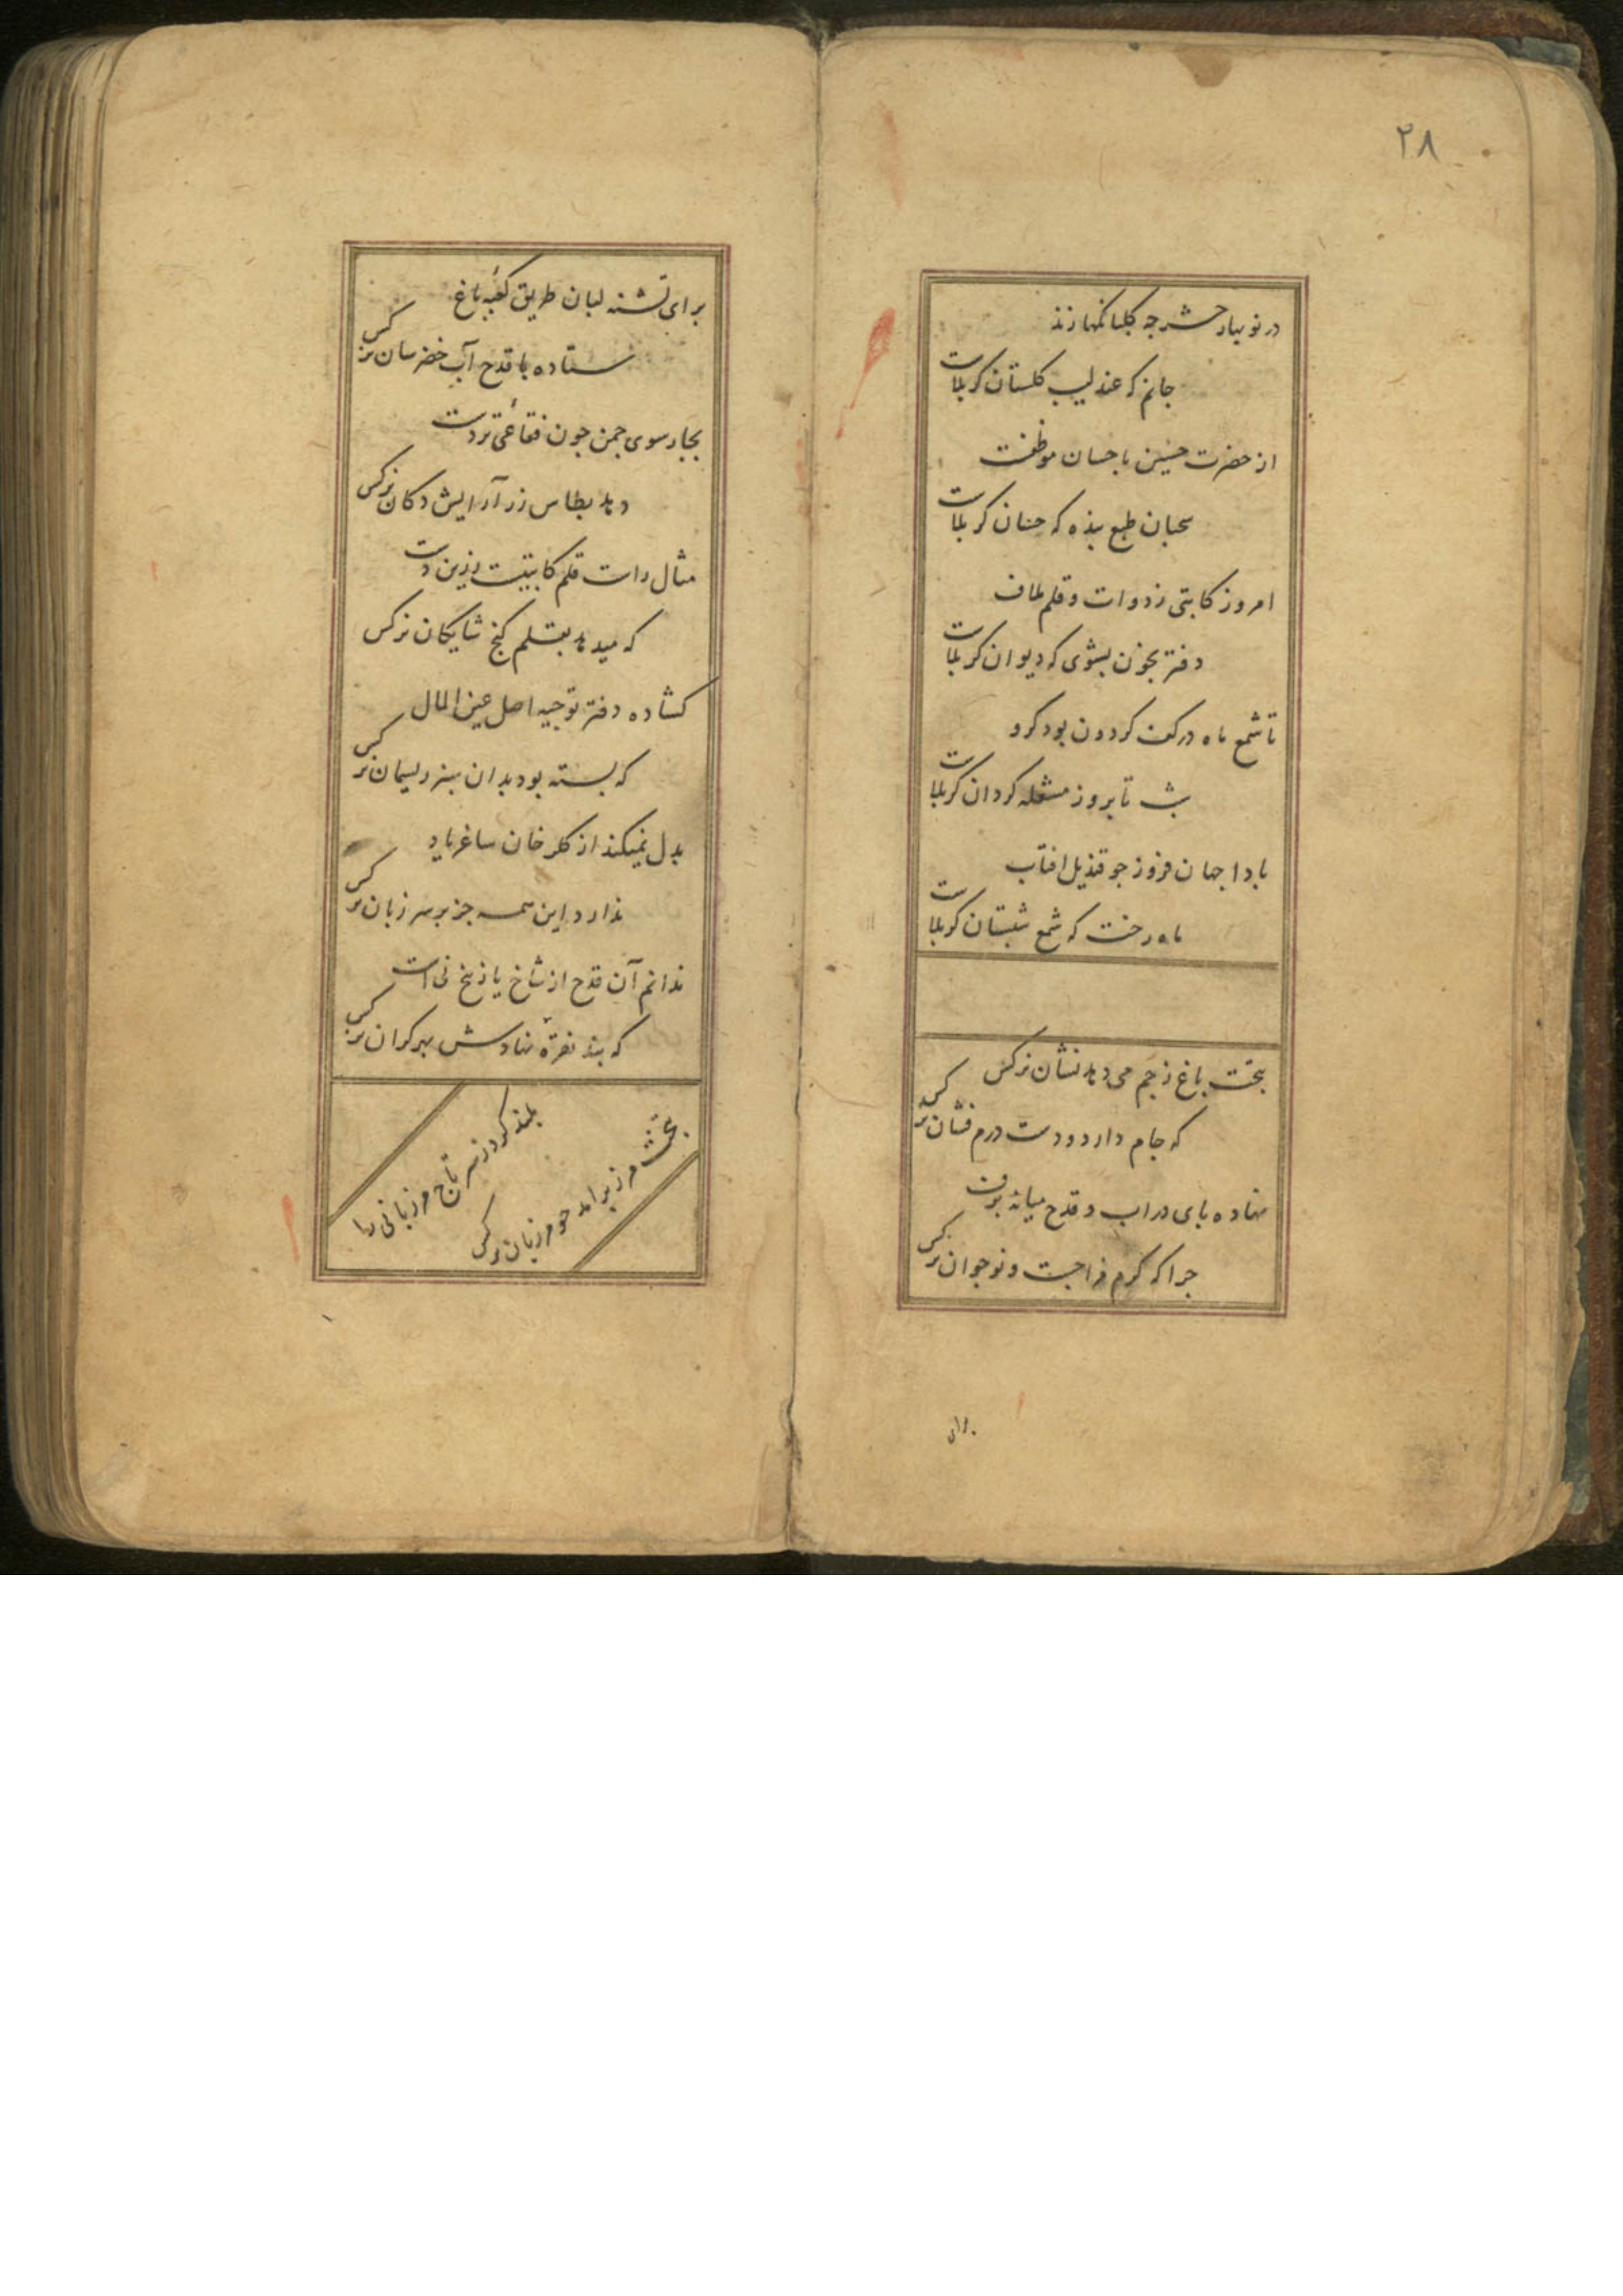 ۲۸
در نوبهار حشر چه گلبانگها زند
جانم که عندلیب گلستان کربلاست
از حضرت حسین باحسان موظفست
سحبان طبع بنده که حسان کربلاست
امروز کاتبی ز دوات و قلم ملاف
دفتر بخون بشوی که دیوان کربلاست
تا شمع ماه در کف گردون بود گرو
شب تا بروز مشعله گردان کربلاست
بادا جهان فروز چو قندیل افتاب
ماه رخت که شمع شبستان کربلاست
بتخت باغ ز جم می دهد نشان نرگس
که جام دارد و دست درم فشان نرگس
نهاده پای در اب و قدح میانه برف
چرا که گرم مزاجست و نوجوان نرگس
برای
برای تشنه لبان طریق کعبه باغ
ستاده با قدح آب خضرسان نرگس
بچارسوی چمن چون فقاعی تردست
دهد بطاس زر آرایش دکان نرگس
مثال راست قلم کاتبیست زرین دست
که میدهد بقلم گنج شایگان نرگس
گشاده دفتر توجیه اصل عین المال
که بسته بود بدان سبز ریسمان نرگس
بدل نمیکند از گلرخان ساغر یاد
ندارد این همه جز بر سر زبان نرگس
ندانم آن قدح از شاخ یا ز یخ نی است
که بند نقره نهادش بهر کران نرگس
بلند کرد ز سر تاج مرزبانی را
بتخت مرز برامد چو مرزبان نرگس